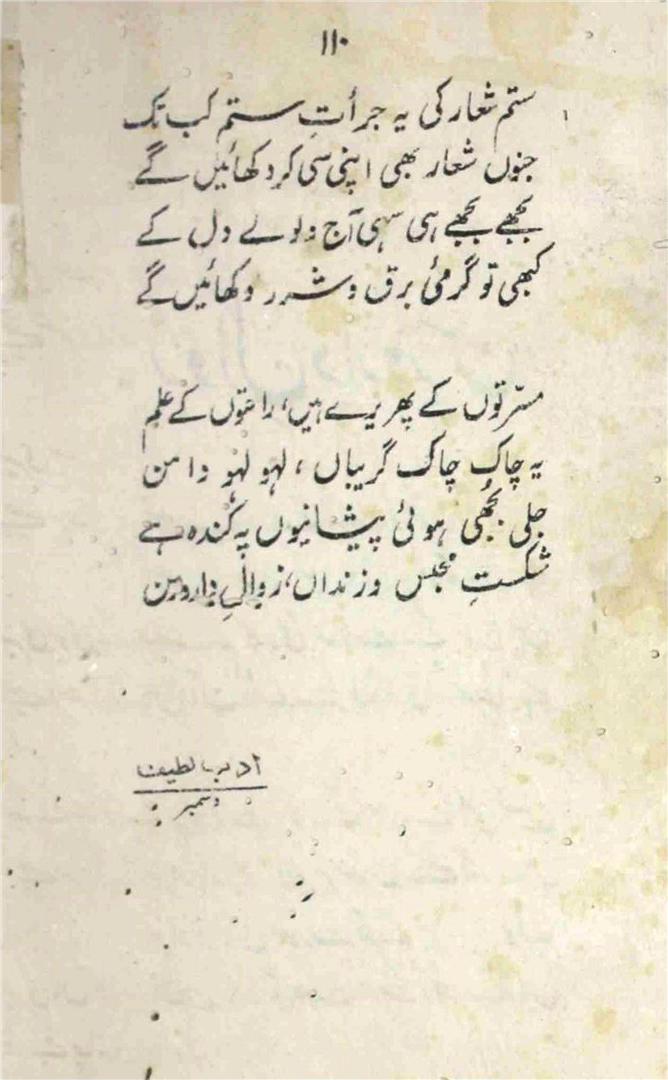 ۱۱۰
ستم شعار کی یہ جرأتِ ستم کب تک
جنوں شعار بھی اپنی سی کر دکھائیں گے
بجھے بجھے ہی سہی آج ولولے دل کے
کبھی تو گرمئ برق و شرر دکھائیں گے
مسرتوں کے پھریرے ہیں، راعتوں کے علم
یہ چاک چاک گریباں، لہو لہو دامن
جلی بجھی ہوئی پیشانیوں پہ کندہ ہے
شکستِ محبس و زنداں، زوالِ دارورسن
ادب لطیف
دسمبر